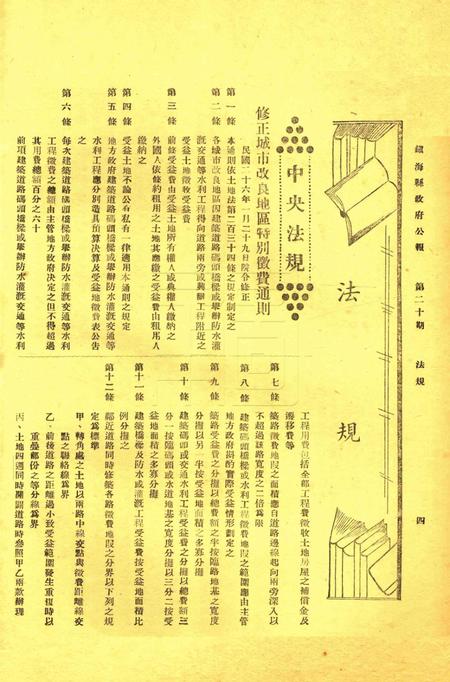 鎮海縣政府公報 第二十期 法規 四
法規
中央法規
修正城市改良地區特別徵費通則
民國二十六年一月二十九日院令修正
第一條 本通則依土地法第二百三十四條之規定制定之
第二條 各城市改良地區因建築道路碼頭橋樑或舉辦防水灌
溉交通等水利工程得向道路兩旁或興辦工程附近之
受益土地徵收受益費
第三條 前條受益費由受益土地所有權人或典權人繳納之
外國人依條約租用之土地其應繳之受益費由租用人
繳納之
第四條 受益土地不論公有私有一律適用本通則之規定
第五條 地方政府建築道路碼頭橋樑或舉辦防水灌溉交通等
水利工程應分別造具預算決算及受益地徵費表公告
之
第六條 每次建築道路碼頭橋樑或舉辦防水灌溉交通等水利
工程徵費之總額由主管地方政府決定之但不得超過
其用費總額百分之六十
前項建築道路碼頭橋樑或舉辦防水灌溉交通等水利
工程用費包括全部工程費徵收土地房屋之補償金及
遷移費等
第七條 築路徵費地段之面積應自道路邊線起向兩旁深入以
不超過該路寬度之二倍為限
第八條 建築碼頭橋樑或水利工程徵費地段之範圍應由主管
地方政府斟酌實際受益情形劃定之
第九條 築路受益費之分擔以總費額之半按臨路地基之寬度
分擔以另一半按受益地面積之多寡分擔
第十條 建築碼頭或交通水利工程受益費之分擔以總費額三
分一按臨碼頭或水道地基之寬度分擔以三分二按受
益地面積之多寡分擔
第十一條 建築橋樑及防水或灌溉工程受益費按受益地面積比
例分擔之
第十二條 鄰近道路同時修築各路徵費地段之分界以下列之規
定為標準
甲、轉角處之土地以兩路中線交點與徵費距離線交
點之聯絡線為界
乙、前後道路之距離過小致受益範圍發生重複時以
重疊部份之等分線為界
丙、土地四週同時開闢道路時參照甲乙兩款辦理